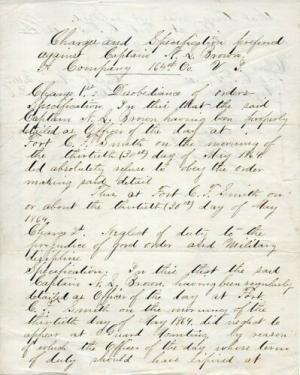 Charge and Specification prefered
against Captain N. L. Brown,
Company 164th Co.
Charge 1st: Disobediance of orders
Specification. In this that the said
Captain N. L. Brown having been properly
detailed as Officer of the day at
Fort C. F. Smith on the morning of
the thirtieth (30th) day of May 1864.
did absolutely refuse to obey the order
making said detail
This at Fort C. F. Smith on
or about the thirtieth (30th) day of May
1864.
Charge 2d. Neglect of duty to the
prejudice of good order and Military
discipline
Specification. In this that the said
Captain N. L. Brown, having been regularly
detailed as Officer of the day at Fort
C. F. Smith on the morning of the
thirtieth day May 1864, did neglect to
appear at Guard Mounting by reason
of which the Officer of the day whose term
of duty should have expired at